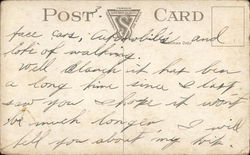 POST CARD
race cars, automobiles and
lots of walking.
Well Blanch it has been
a long time since I last
saw you, I hope it wont
be much longer I will
tell you about my trip.